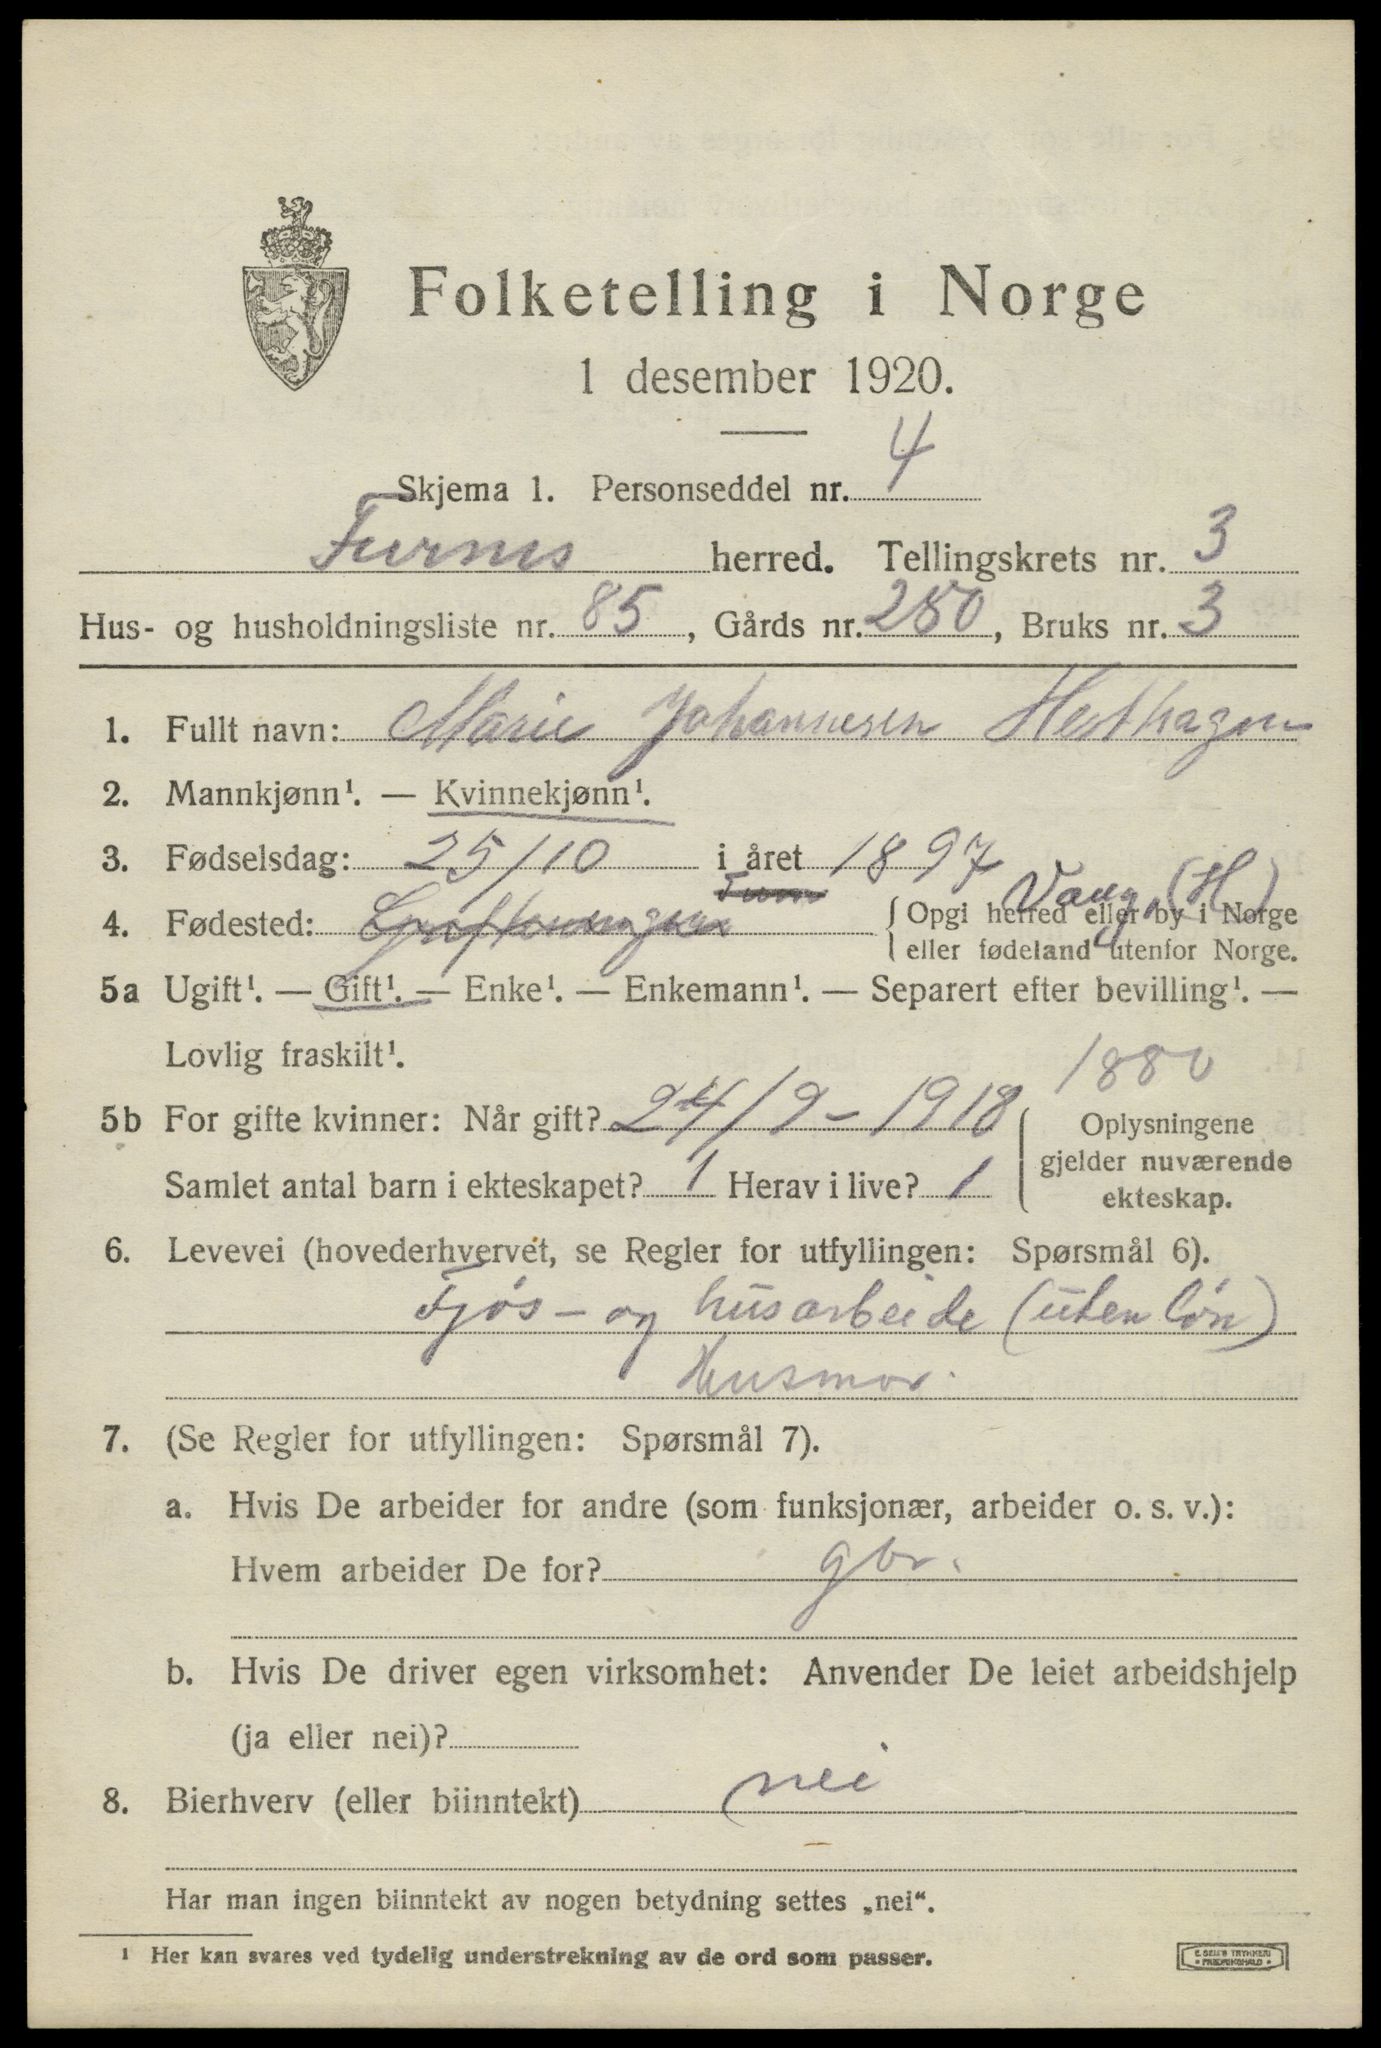 Folketelling i Norge
1 desember 1920.
Skjema 1. Personseddel nr. 4
Furnes herred. Tellingskrets nr. 3
Hus- og husholdningsliste nr. 85, Gårds nr. 280, Bruks nr. 3
1. Fullt navn: Marie Johannesen Hesthagen
2. Mannkjønn¹. — Kvinnekjønn¹.
3. Fødselsdag: 25/10 i året 1897
4. Fødested: Vang (H)
Opgi herred eller by i Norge
eller fødeland utenfor Norge.
5a Ugift¹. — Gift¹. — Enke¹. — Enkemann¹. — Separert efter bevilling¹. —
Lovlig fraskilt¹.
1880
5b For gifte kvinner: Når gift? 24/9 – 1918
Samlet antal barn i ekteskapet? 1 Herav i live? 1
Oplysningene
gjelder nuværende
ekteskap.
6. Levevei (hovederhvervet, se Regler for utfyllingen: Spørsmål 6).
Fjøs – og husarbeide (uten løn)
Husmor.
7. (Se Regler for utfyllingen: Spørsmål 7).
a. Hvis De arbeider for andre (som funksjonær, arbeider o. s. v.):
Hvem arbeider De for? gbr.
b. Hvis De driver egen virksomhet: Anvender De leiet arbeidshjelp
(ja eller nei)?
8. Bierhverv (eller biinntekt) nei
Har man ingen biinntekt av nogen betydning settes „nei“.
¹ Her kan svares ved tydelig understrekning av de ord som passer.
E. SEM'S TRYKKERI
FREDRIKSHALD